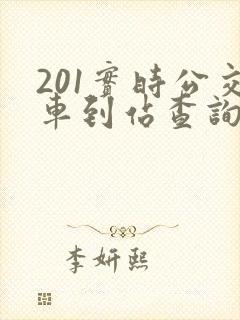 201實時公交
車到佔查詢
李妍熙